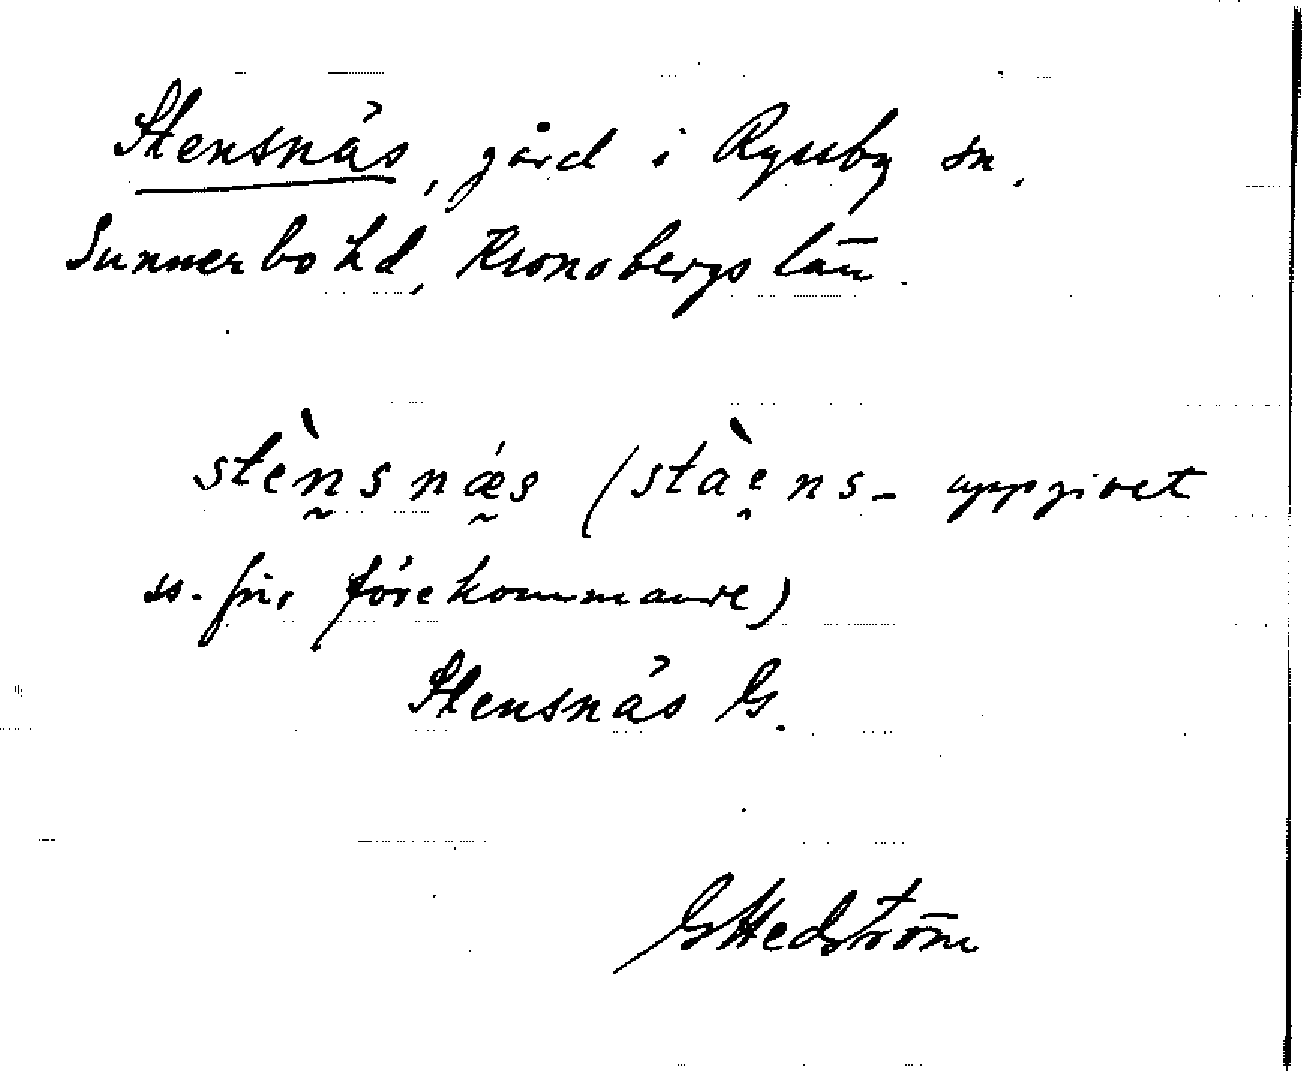 Stensnäs, gård i Ryssby sn.
Sunnerbo hd, Kronobergs län
stèn̰snǽ̰s (stàe̯ns- uppgivet
ss. förr förekommande)
Stensnäs G.
GHedström